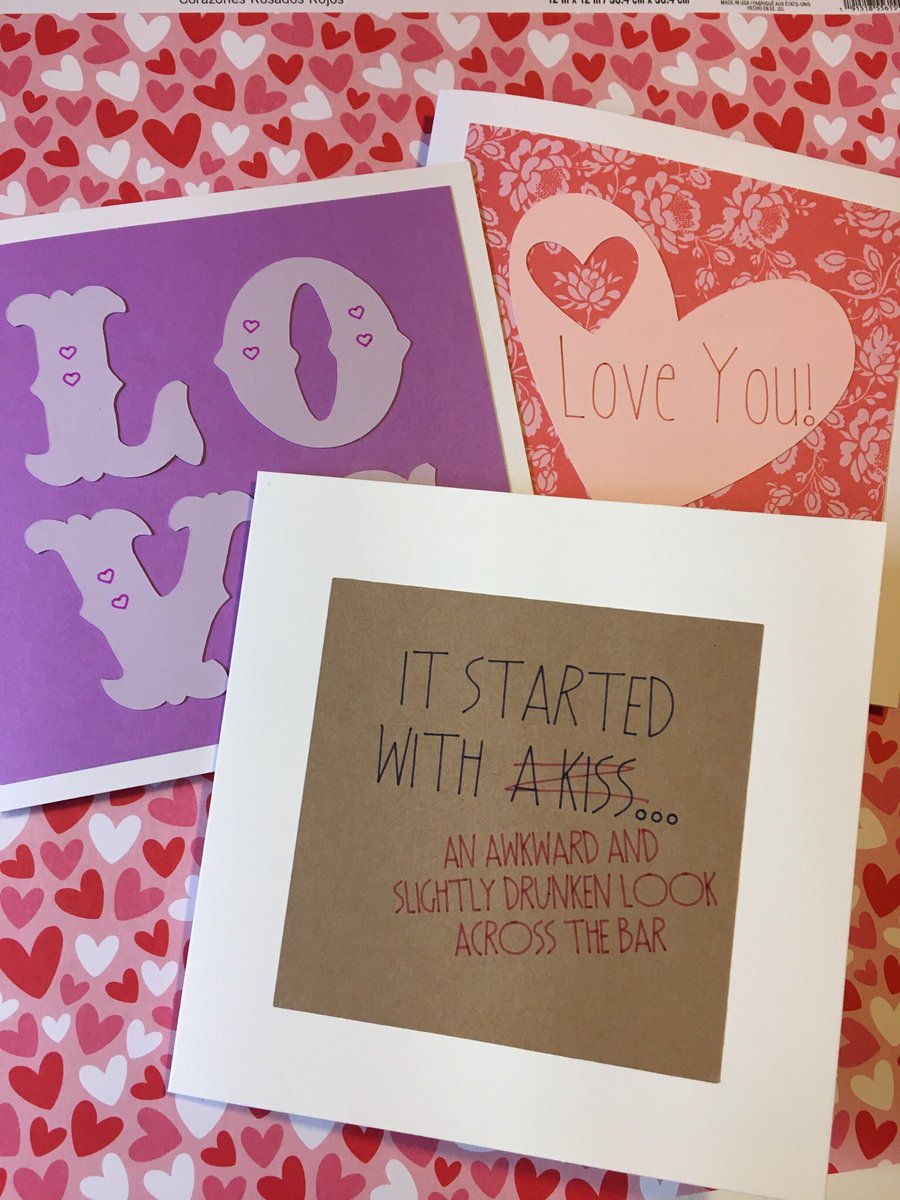 Corazones Rosados Rojos
12 in x 12 in / 30.4 cm x 30.4 cm
MADE IN USA / FABRIQUÉ AUX ÉTATS-UNIS
HECHO EN EE. UU.
LO
V
Love You!
IT STARTED
WITH A KISS...
AN AWKWARD AND
SLIGHTLY DRUNKEN LOOK
ACROSS THE BAR